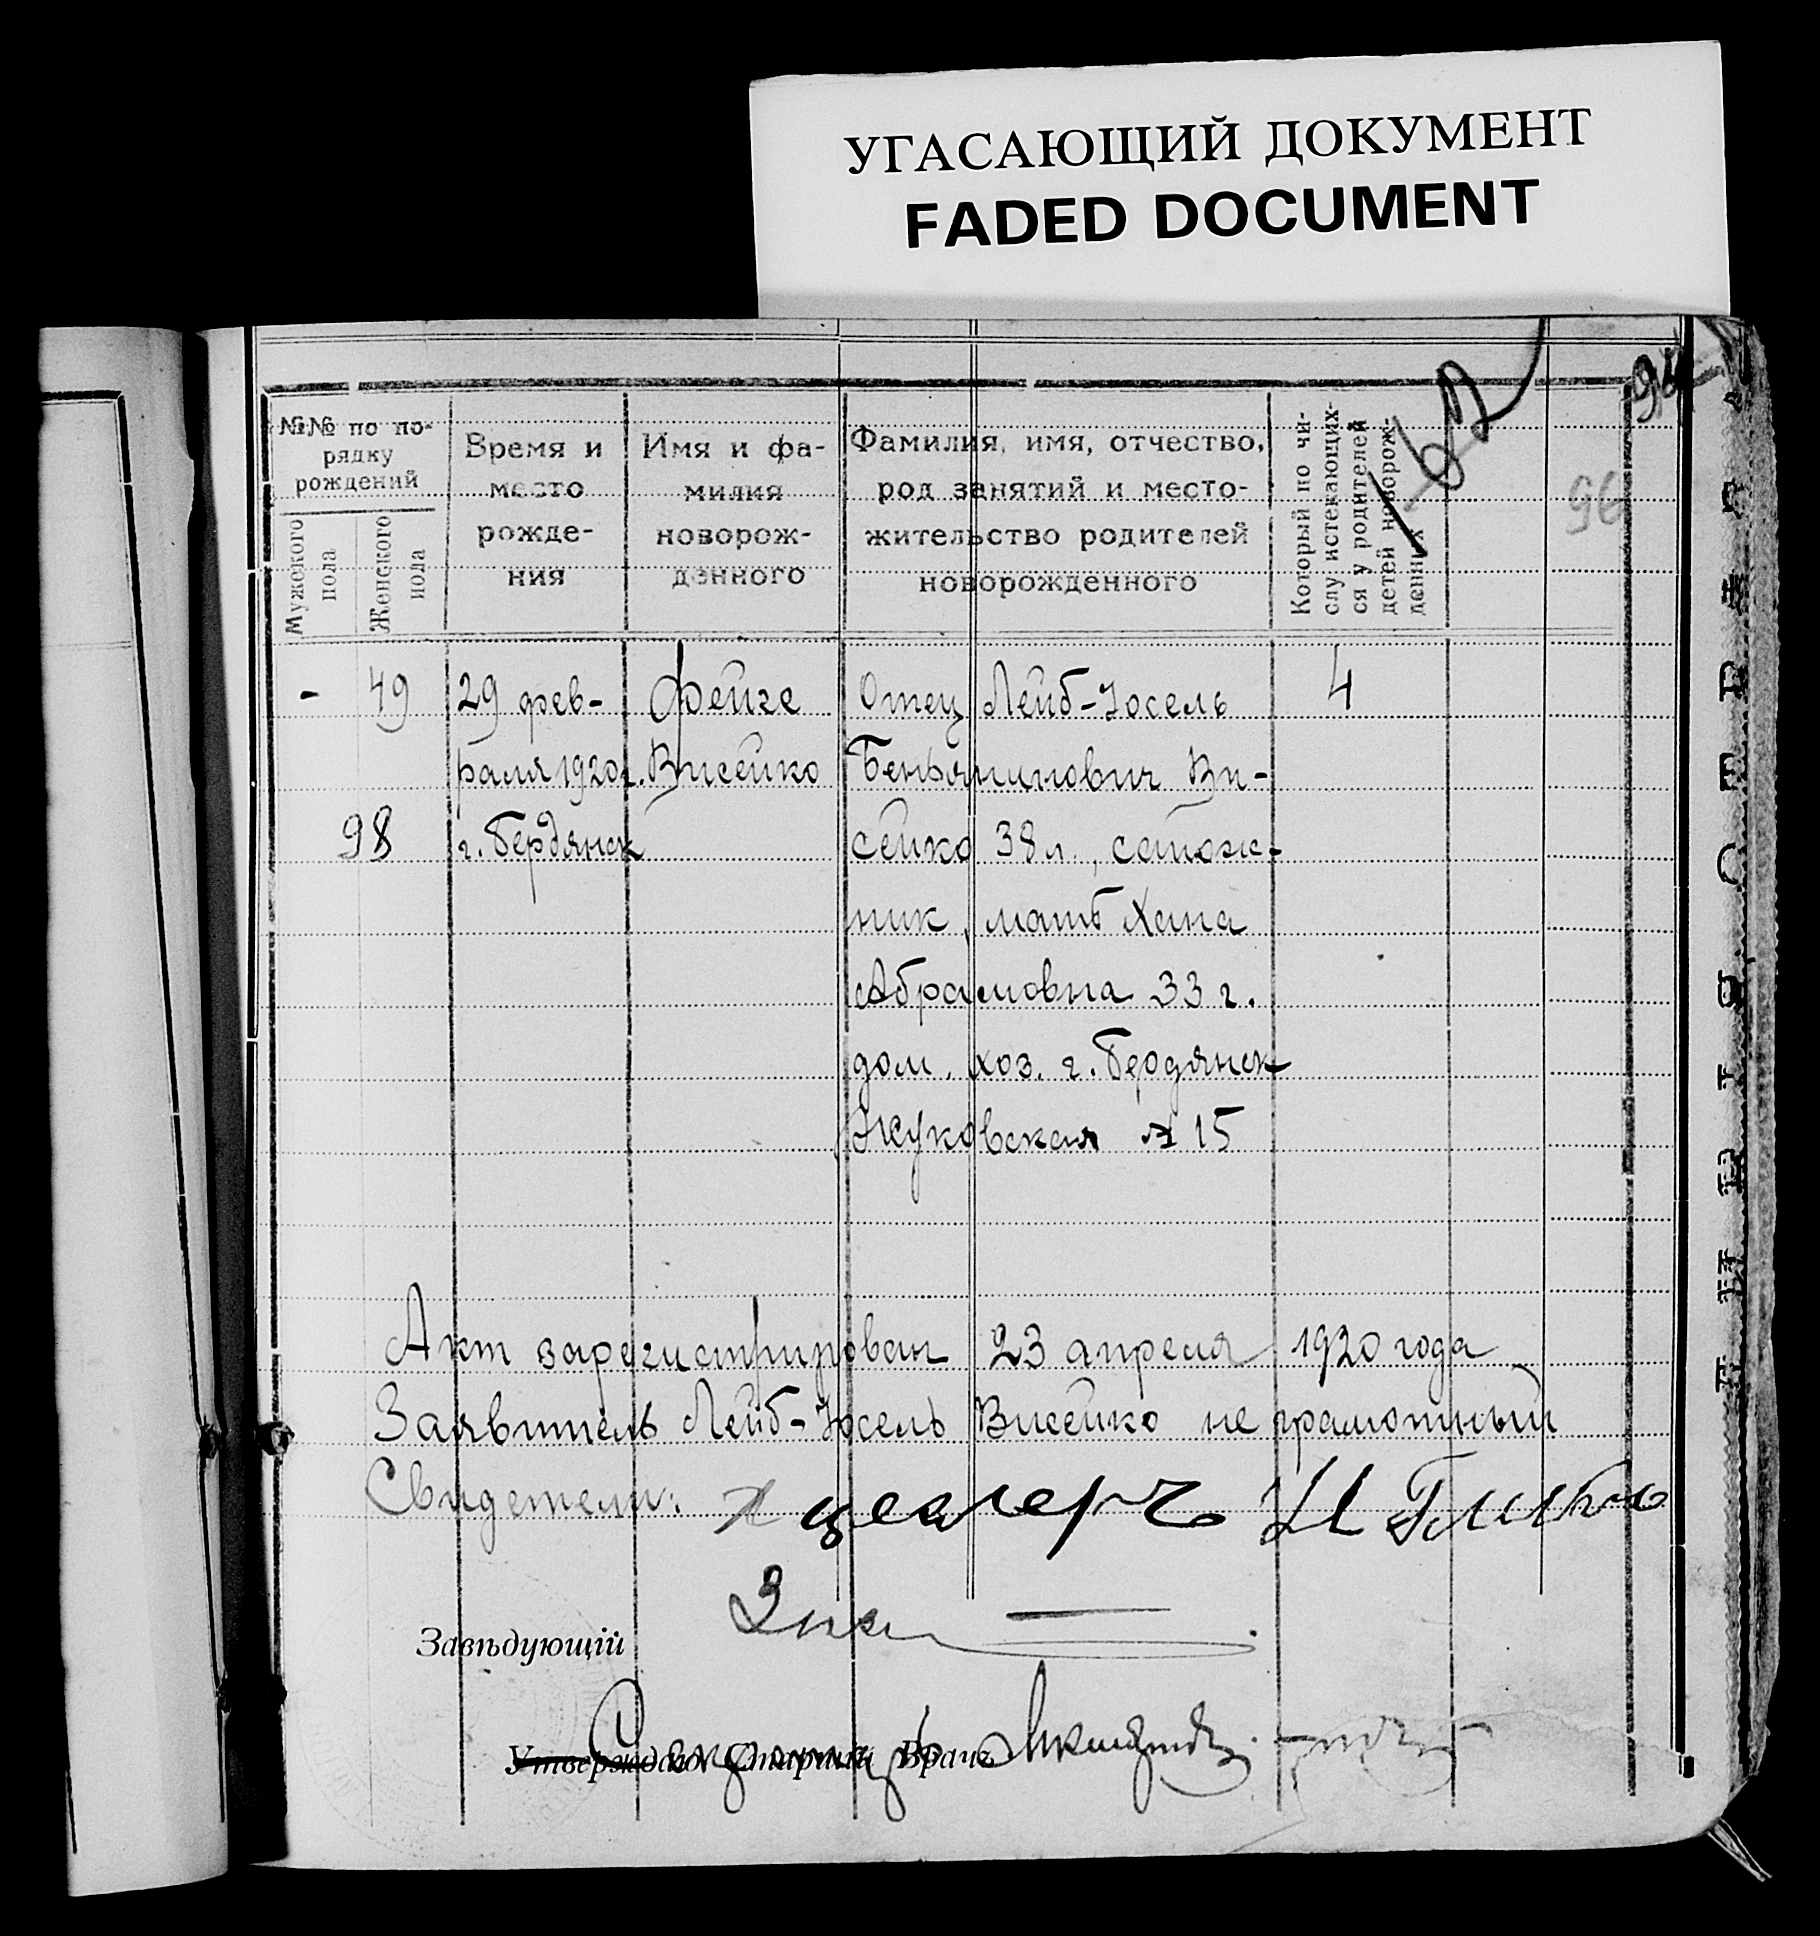 УГАСАЮЩИЙ ДОКУМЕНТ
FADED DOCUMENT
94
96
№№ по по-
рядку
рождений
Мужского
пола
Женского
пола
Время и
место
рожде-
ния
Имя и фа-
милия
новорож-
денного
Фамилия, имя, отчество,
род занятий и место-
жительство родителей
новорожденного
Который по чи-
слу истекающих-
ся у родителей
детей новорож-
денных
- 49
98
29 фев-
раля 1920 г.
г. Бердянск
Фейге
Висейко
Отец Лейб-Иосель
Беньяминович Ви-
сейко 38 л., сапож-
ник, мать Хана
Абрамовна 33 г.
дом. хоз. г. Бердянск
Жуковская № 15
4
Акт зарегистрирован 23 апреля 1920 года
Заявитель Лейб-Иосель Висейко не грамотный
Свидетели:
Завѣдующій
Утверждаю: Старшій Врачъ